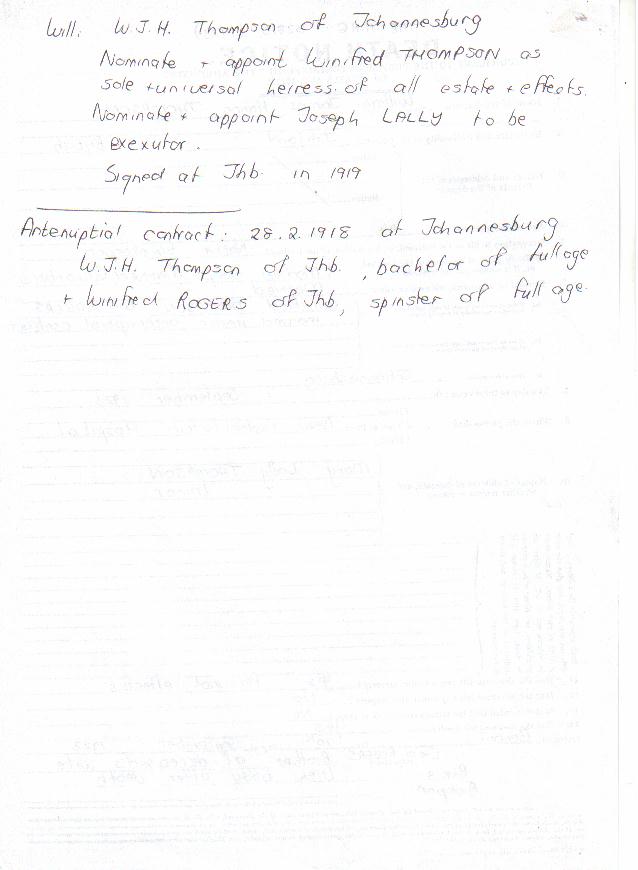 Will: W.J.H. Thompson of Johannesburg
Nominate + appoint Winifred THOMPSON as
sole + universal heiress of all estate + effects.
Nominate + appoint Joseph LALLY to be
exexutor.
Signed at Jhb. in 1919
Antenuptial contract: 28.2.1918 at Johannesburg
W.J.H. Thompson of Jhb., bachelor of full age
+ Winifred ROGERS of Jhb, spinster of full age.